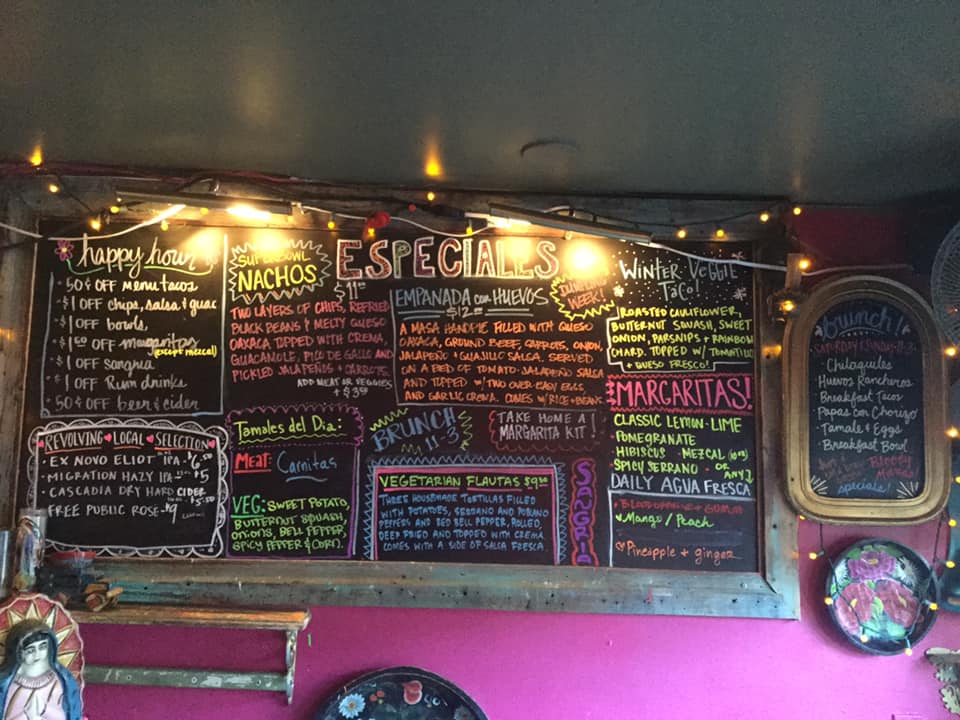 happy hour
· 50¢ OFF menu tacos
· $1 OFF chips, salsa & guac
· $1 OFF bowls
· $1 50 OFF margaritas
(except mezcal)
· $1 OFF sangria
· $1 OFF Rum drinks
· 50¢ OFF beer & cider
REVOLVING ♥ LOCAL ♥ SELECTION
· EX NOVO ELIOT IPA $6.50
· MIGRATION HAZY IPA $5
· CASCADIA DRY HARD CIDER $5.50
FREE PUBLIC ROSE $9
ESPECIALES
SUPERBOWL
NACHOS
$11.00
TWO LAYERS OF CHIPS, REFRIED
BLACK BEANS & MELTY QUESO
OAXACA, TOPPED WITH CREMA
GUACAMOLE, PICO DE GALLO AND
PICKLED JALAPEÑOS + CARROTS.
ADD MEAT OR VEGGIES
+ $3.50
Tamales del Dia:
MEAT: Carnitas
VEG: SWEET POTATO
BUTTERNUT SQUASH,
ONIONS, BELL PEPPER,
SPICY PEPPER & CORN.
EMPANADA con HUEVOS
$12.00
DUMPLING
WEEK!
A MASA HANDPIE FILLED WITH QUESO
OAXACA, GROUND BEEF, CARROTS, ONION,
JALAPEÑO + GUAJILLO SALSA. SERVED
ON A BED OF TOMATO-JALAPEÑO SALSA
AND TOPPED W/ TWO OVER EASY EGGS,
AND GARLIC CREMA. COMES W/ RICE + BEANS
BRUNCH
11-3
TAKE HOME A
MARGARITA KIT!
VEGETARIAN FLAUTAS $9.00
THREE HOUSEMADE TORTILLAS FILLED
WITH POTATOES, SERRANO AND POBLANO
PEPPERS AND RED BELL PEPPER, ROLLED,
DEEP FRIED AND TOPPED WITH CREMA.
COMES WITH A SIDE OF SALSA FRESCA.
SANGRIA
WINTER VEGGIE
TACO!
ROASTED CAULIFLOWER,
BUTTERNUT SQUASH, SWEET
ONION, PARSNIPS + RAINBOW
CHARD. TOPPED W/ TOMATILLO
+ QUESO FRESCO!
MARGARITAS!
CLASSIC LEMON-LIME
POMEGRANATE
HIBISCUS · MEZCAL
SPICY SERRANO · OR ANY
DAILY AGUA FRESCA
Mango / Peach
♥ Pineapple + ginger
Brunch!
SATURDAY & SUNDAY 11-3
Chilaquiles
Huevos Rancheros
Breakfast Tacos
Papas con Chorizo
Tamale & Eggs
Breakfast Bowl
Bloody
specials!